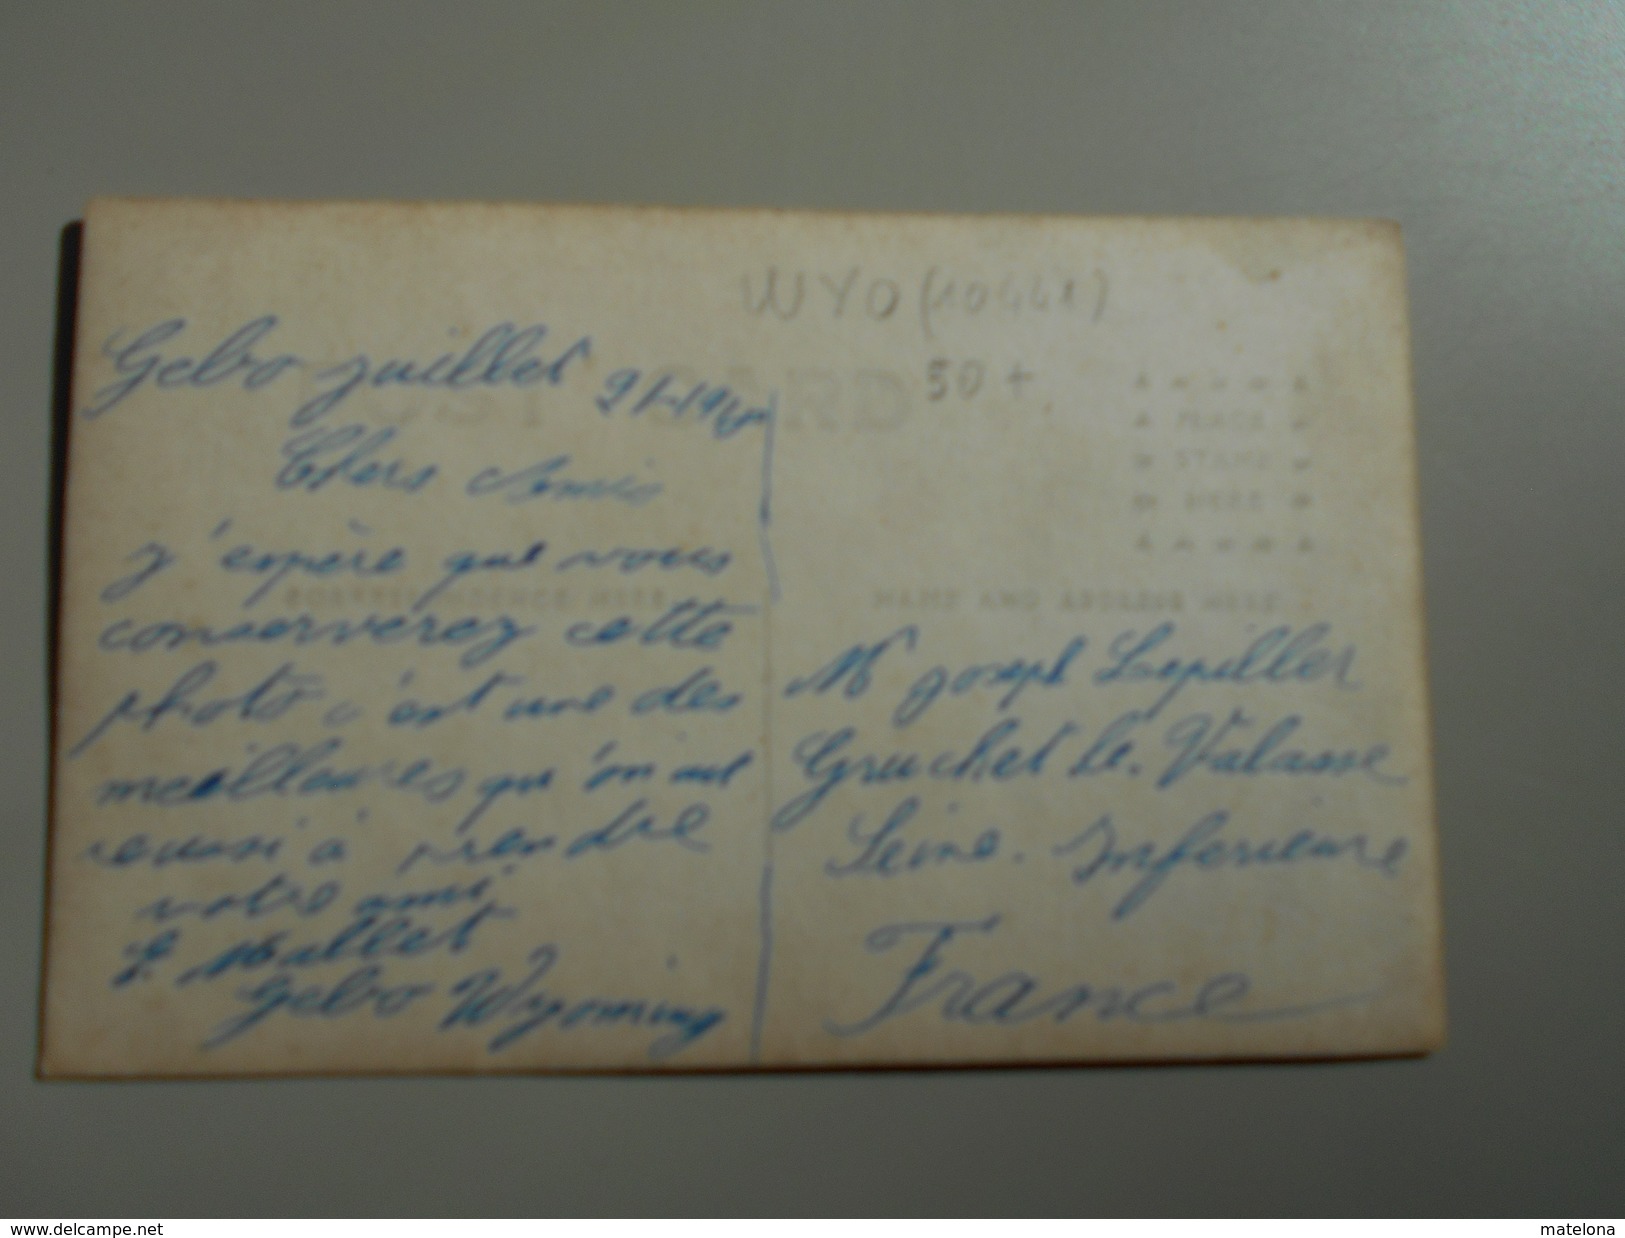 WYO (10441)
50 +
POST CARD
Gebo juillet
Chers Amis
j'espère que vous
conserverez cette
photo c'est une des
meilleures qu'on
reussi à prendre
votre ami
Mallet
Gebo Wyoming
PLACE
STAMP
HERE
CORRESPONDENCE HERE
NAME AND ADDRESS HERE
Mr Joseph Lepiller
Gruchet le. Valasse
Seine. Inferieure
France
www.delcampe.net
matelona